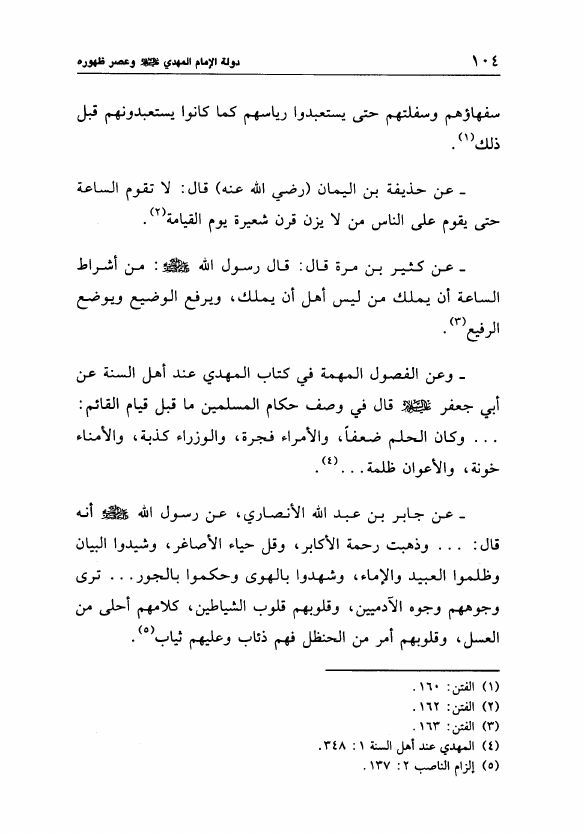 ١٠٤ دولة الإمام المهدي ﷺ وعصر ظهوره
سفهاؤهم وسفلتهم حتى يستعبدوا رياسهم كما كانوا يستعبدونهم قبل
ذلك(١).
ـ عن حذيفة بن اليمان (رضي الله عنه) قال: لا تقوم الساعة
حتى يقوم على الناس من لا يزن قرن شعيرة يوم القيامة(٢).
ـ عن كثير بن مرة قال: قال رسول الله ﷺ: من أشراط
الساعة أن يملك من ليس أهل أن يملك، ويرفع الوضيع ويوضع
الرفيع(٣).
ـ وعن الفصول المهمة في كتاب المهدي عند أهل السنة عن
أبي جعفر عليه السلام قال في وصف حكام المسلمين ما قبل قيام القائم:
... وكان الحلم ضعفاً، والأمراء فجرة، والوزراء كذبة، والأمناء
خونة، والأعوان ظلمة...(٤).
ـ عن جابر بن عبد الله الأنصاري، عن رسول الله ﷺ أنه
قال: ... وذهبت رحمة الأكابر، وقل حياء الأصاغر، وشيدوا البيان
وظلموا العبيد والإماء، وشهدوا بالهوى وحكموا بالجور... ترى
وجوههم وجوه الآدميين، وقلوبهم قلوب الشياطين، كلامهم أحلى من
العسل، وقلوبهم أمر من الحنظل فهم ذئاب وعليهم ثياب(٥).
(١) الفتن: ١٦٠.
(٢) الفتن: ١٦٢.
(٣) الفتن: ١٦٣.
(٤) المهدي عند أهل السنة ١: ٣٤٨.
(٥) إلزام الناصب ٢: ١٣٧.